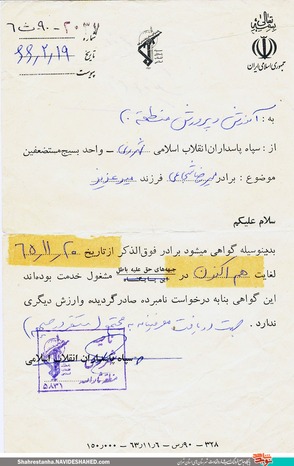 بسمه تعالی
جمهوری اسلامی ایران
شماره
تاریخ ۶۶,۲,۱۹
پیوست
به : آموزش و پرورش منطقه ۱۰
از : سپاه پاسداران انقلاب اسلامی – واحد بسیج مستضعفین
موضوع : برادر فرزند میرعزیز
سلام علیکم
بدینوسیله گواهی میشود برادر فوق‌الذکر از تاریخ ۶۵,۱۱,۲۰
لغایت هم اکنون در جبهه‌های حق علیه باطل مشغول خدمت بوده‌اند
این گواهی بنابه درخواست نامبرده صادر گردیده وارزش دیگری
ندارد .
سپاه پاسداران انقلاب اسلامی
۵۸۳۱
۳۲۸ – ۹۰رس – ۶۳٫۱۱٫۶ – ۱۵۰٫۰۰۰
Shahrestanha.NAVIDESHAHED.com